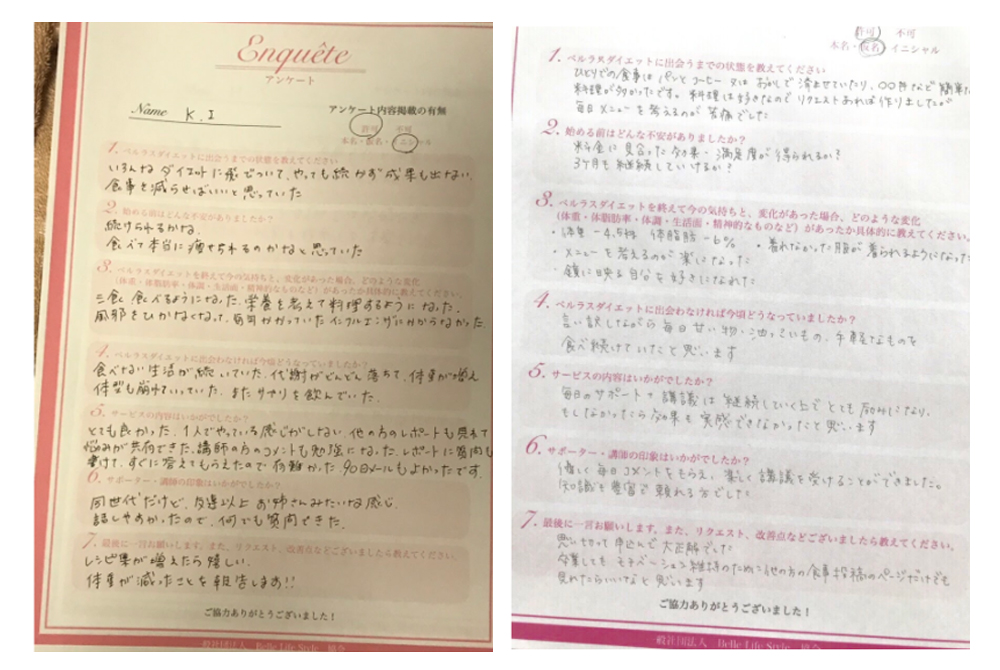 Enquête
アンケート
Name K.I
アンケート内容掲載の有無
許可 不可
本名・仮名・イニシャル
1. ベルラスダイエットに出会うまでの状態を教えてください
いろんなダイエットに飛びついて、やっても続かず成果も出ない。
食事を減らせばいいと思っていた
2. 始める前はどんな不安がありましたか?
続けられるかな。
食べて本当に痩せられるのかなと思っていた
3. ベルラスダイエットを終えて今の気持ちと、変化があった場合、どのような変化
(体重・体脂肪率・体調・生活面・精神的なものなど)があったか具体的に教えてください。
三食、食べるようになった。栄養を考えて料理するようになった。
風邪をひかなくなって、毎年かかっていたインフルエンザにかからなかった。
4. ベルラスダイエットに出会わなければ今頃どうなっていましたか?
食べない生活が続いていた。代謝がどんどん落ちて、体重が増え
体型も崩れていっていた。またサプリを飲んでいた。
5. サービスの内容はいかがでしたか?
とても良かった。1人でやっている感じがしない。他の方のレポートも見れて
悩みが共有できた。講師の方のコメントも勉強になった。レポートに質問も
書けて、すぐに答えてもらえたので有難かった。90日メールもよかったです。
6. サポーター・講師の印象はいかがでしたか?
同世代だけど、友達以上お姉さんみたいな感じ。
話しやすかったので、何でも質問できた。
7. 最後に一言お願いします。また、リクエスト、改善点などございましたら教えてください。
レシピ集が増えたら嬉しい。
体重が減ったことを報告します!!
ご協力ありがとうございました!
許可 不可
本名・仮名・イニシャル
1. ベルラスダイエットに出会うまでの状態を教えてください
ひとりでの食事はパンとコーヒー又はおかしで済ませていたり、〇〇丼など簡単な
料理が多かったです。料理は好きなのでリクエストあれば作りましたが
毎日メニューを考えるのが苦痛でした
2. 始める前はどんな不安がありましたか?
料金に見合った効果・満足度が得られるか?
3ヶ月も継続していけるか?
3. ベルラスダイエットを終えて今の気持ちと、変化があった場合、どのような変化
(体重・体脂肪率・体調・生活面・精神的なものなど)があったか具体的に教えてください。
・体重 -4.5kg 体脂肪 -6% ・着れなかった服が着られるようになった
・メニューを考えるのが楽になった
・鏡に映る自分を好きになれた
4. ベルラスダイエットに出会わなければ今頃どうなっていましたか?
言い訳しながら毎日甘い物・油っこいもの、手軽なものを
食べ続けていたと思います
5. サービスの内容はいかがでしたか?
毎日のサポートと講議は継続していく上でとても励みになり、
もしなかったら効果も実感できなかったと思います
6. サポーター・講師の印象はいかがでしたか?
優しく毎日コメントをもらえ、楽しく講議を受けることができました。
知識も豊富で頼れる方でした
7. 最後に一言お願いします。また、リクエスト、改善点などございましたら教えてください。
思い切って申込んで大正解でした
卒業してもモチベーション維持のために他の方の食事投稿のページだけでも
見れたらいいなと思います
ご協力ありがとうございました!
一般社団法人 Belle Life Style 協会